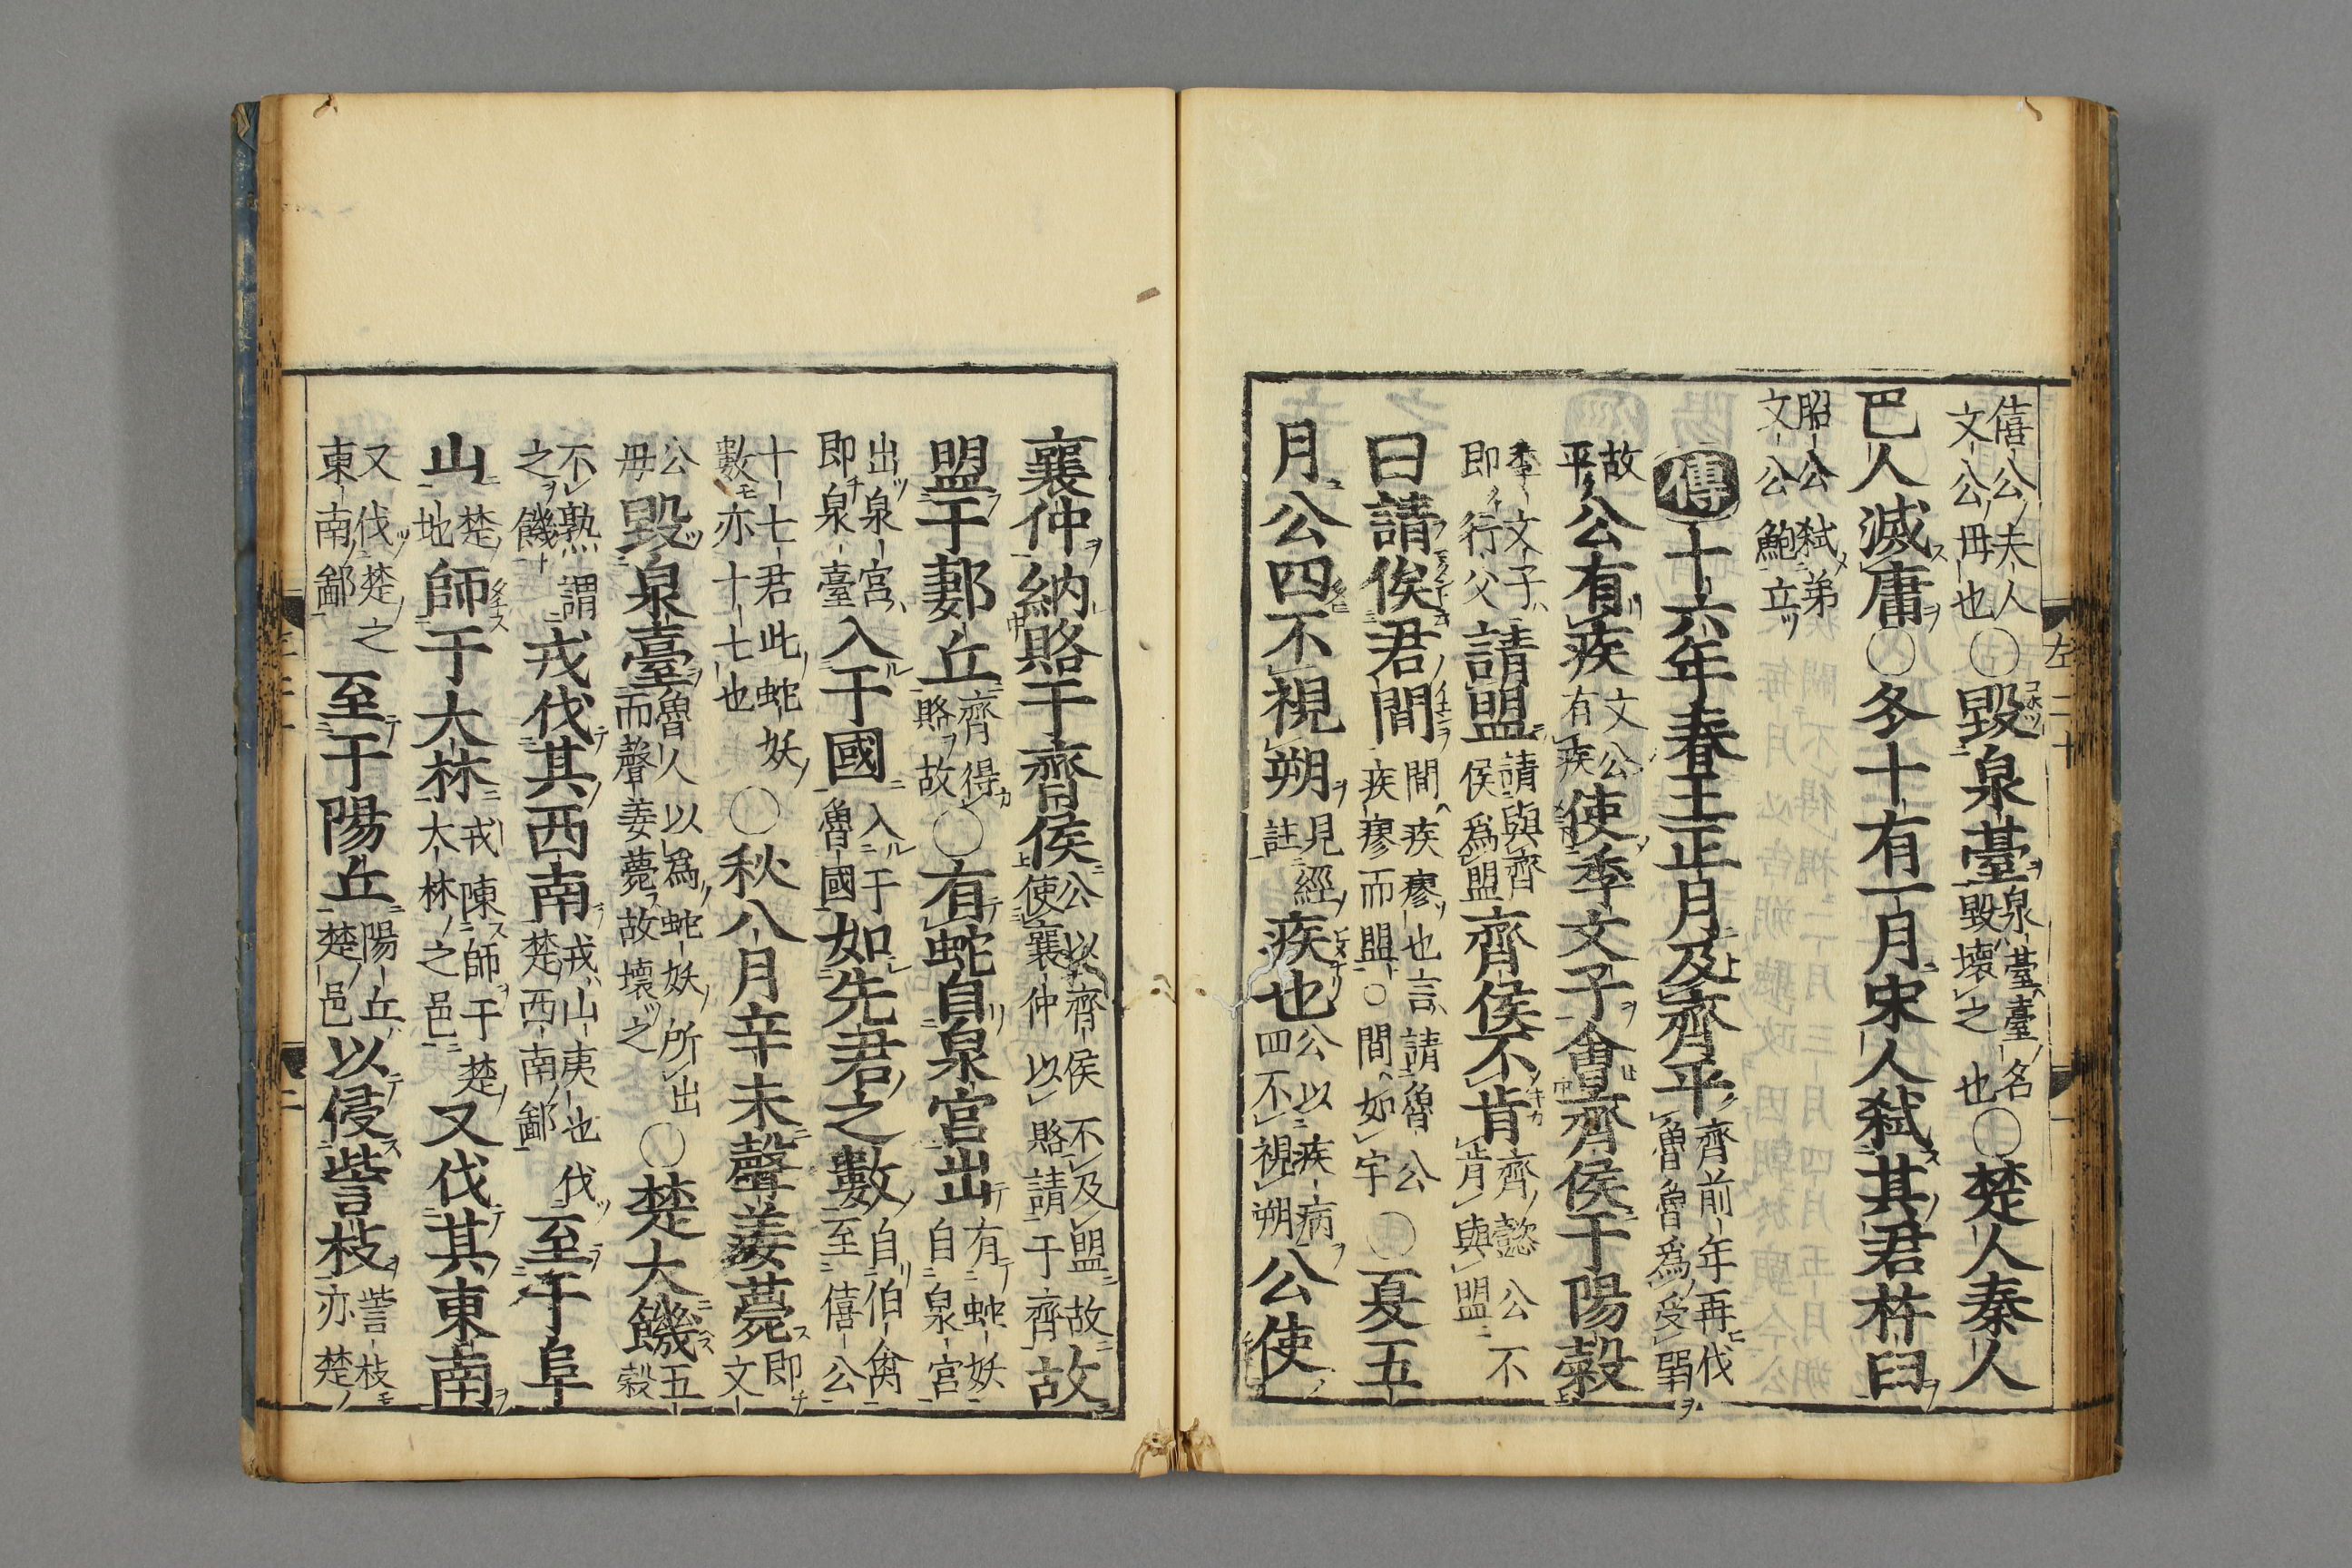 左二十 一
僖公夫人文公毋也○毀泉臺泉臺臺名毀壞之也○楚人秦人
巴人滅庸○冬十有一月宋人弒其君杵臼
昭公弒弟文公鮑立
傳十六年春王正月及齊平齊前年再伐魯魯爲受弱
故平公有疾文公有疾使季文子會齊侯于陽穀
季文子即行父請盟請與齊侯爲盟齊侯不肯齊懿公不肯與盟
曰請俟君間間疾瘳也言請魯公疾瘳而盟○間如字○夏五
月公四不視朔見經註疾也公以疾病四不視朔公使
襄仲納賂于齊侯公以齊侯不及盟故使襄仲以賂請于齊故
盟于郪丘齊得賂故○有蛇自泉宮出有蛇妖自泉宮
出泉宮即泉臺入于國入于魯國如先君之數自伯禽至僖公
十七君此蛇妖數亦十七也○秋八月辛未聲姜薨即文
公毋毀泉臺魯人以爲蛇妖所出而聲姜薨故壞之○楚大饑五穀
不熟謂之饑戎伐其西南戎山夷也伐楚西南鄙至于阜
山楚地師于大林戎陳師于楚大林之邑又伐其東南
又伐楚之東南鄙至于陽丘陽丘楚邑以侵訾枝訾枝亦楚